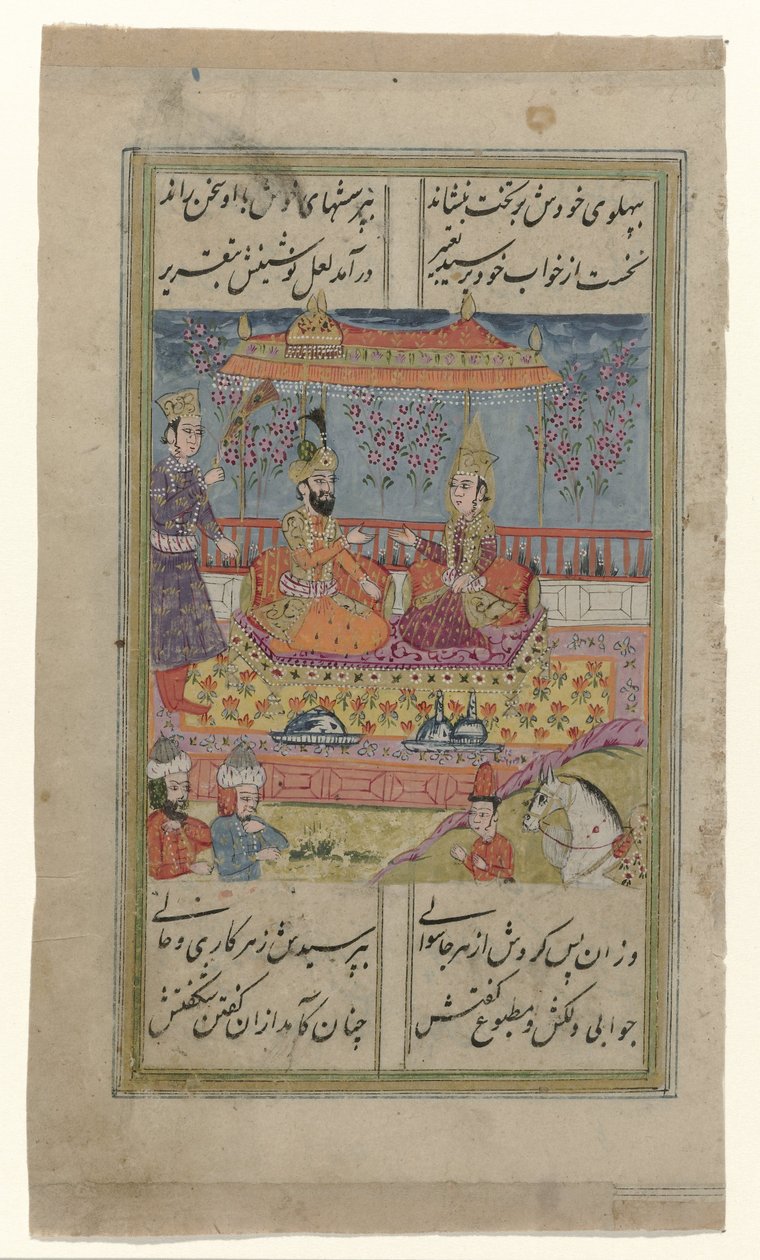 بپهلوی خودش بر تخت بنشاند بپرسشهای خوش با او سخن راند
نخست از خواب خود پرسید تعبیر درآمد لعل نوشینش بتقریر
وزان پس کردش از هر جا سوالی بپرسیدش ز هر کاری و حالی
جوابی دلکش و مطبوع گفتش چنان کآمد ازان گفتن شگفتش